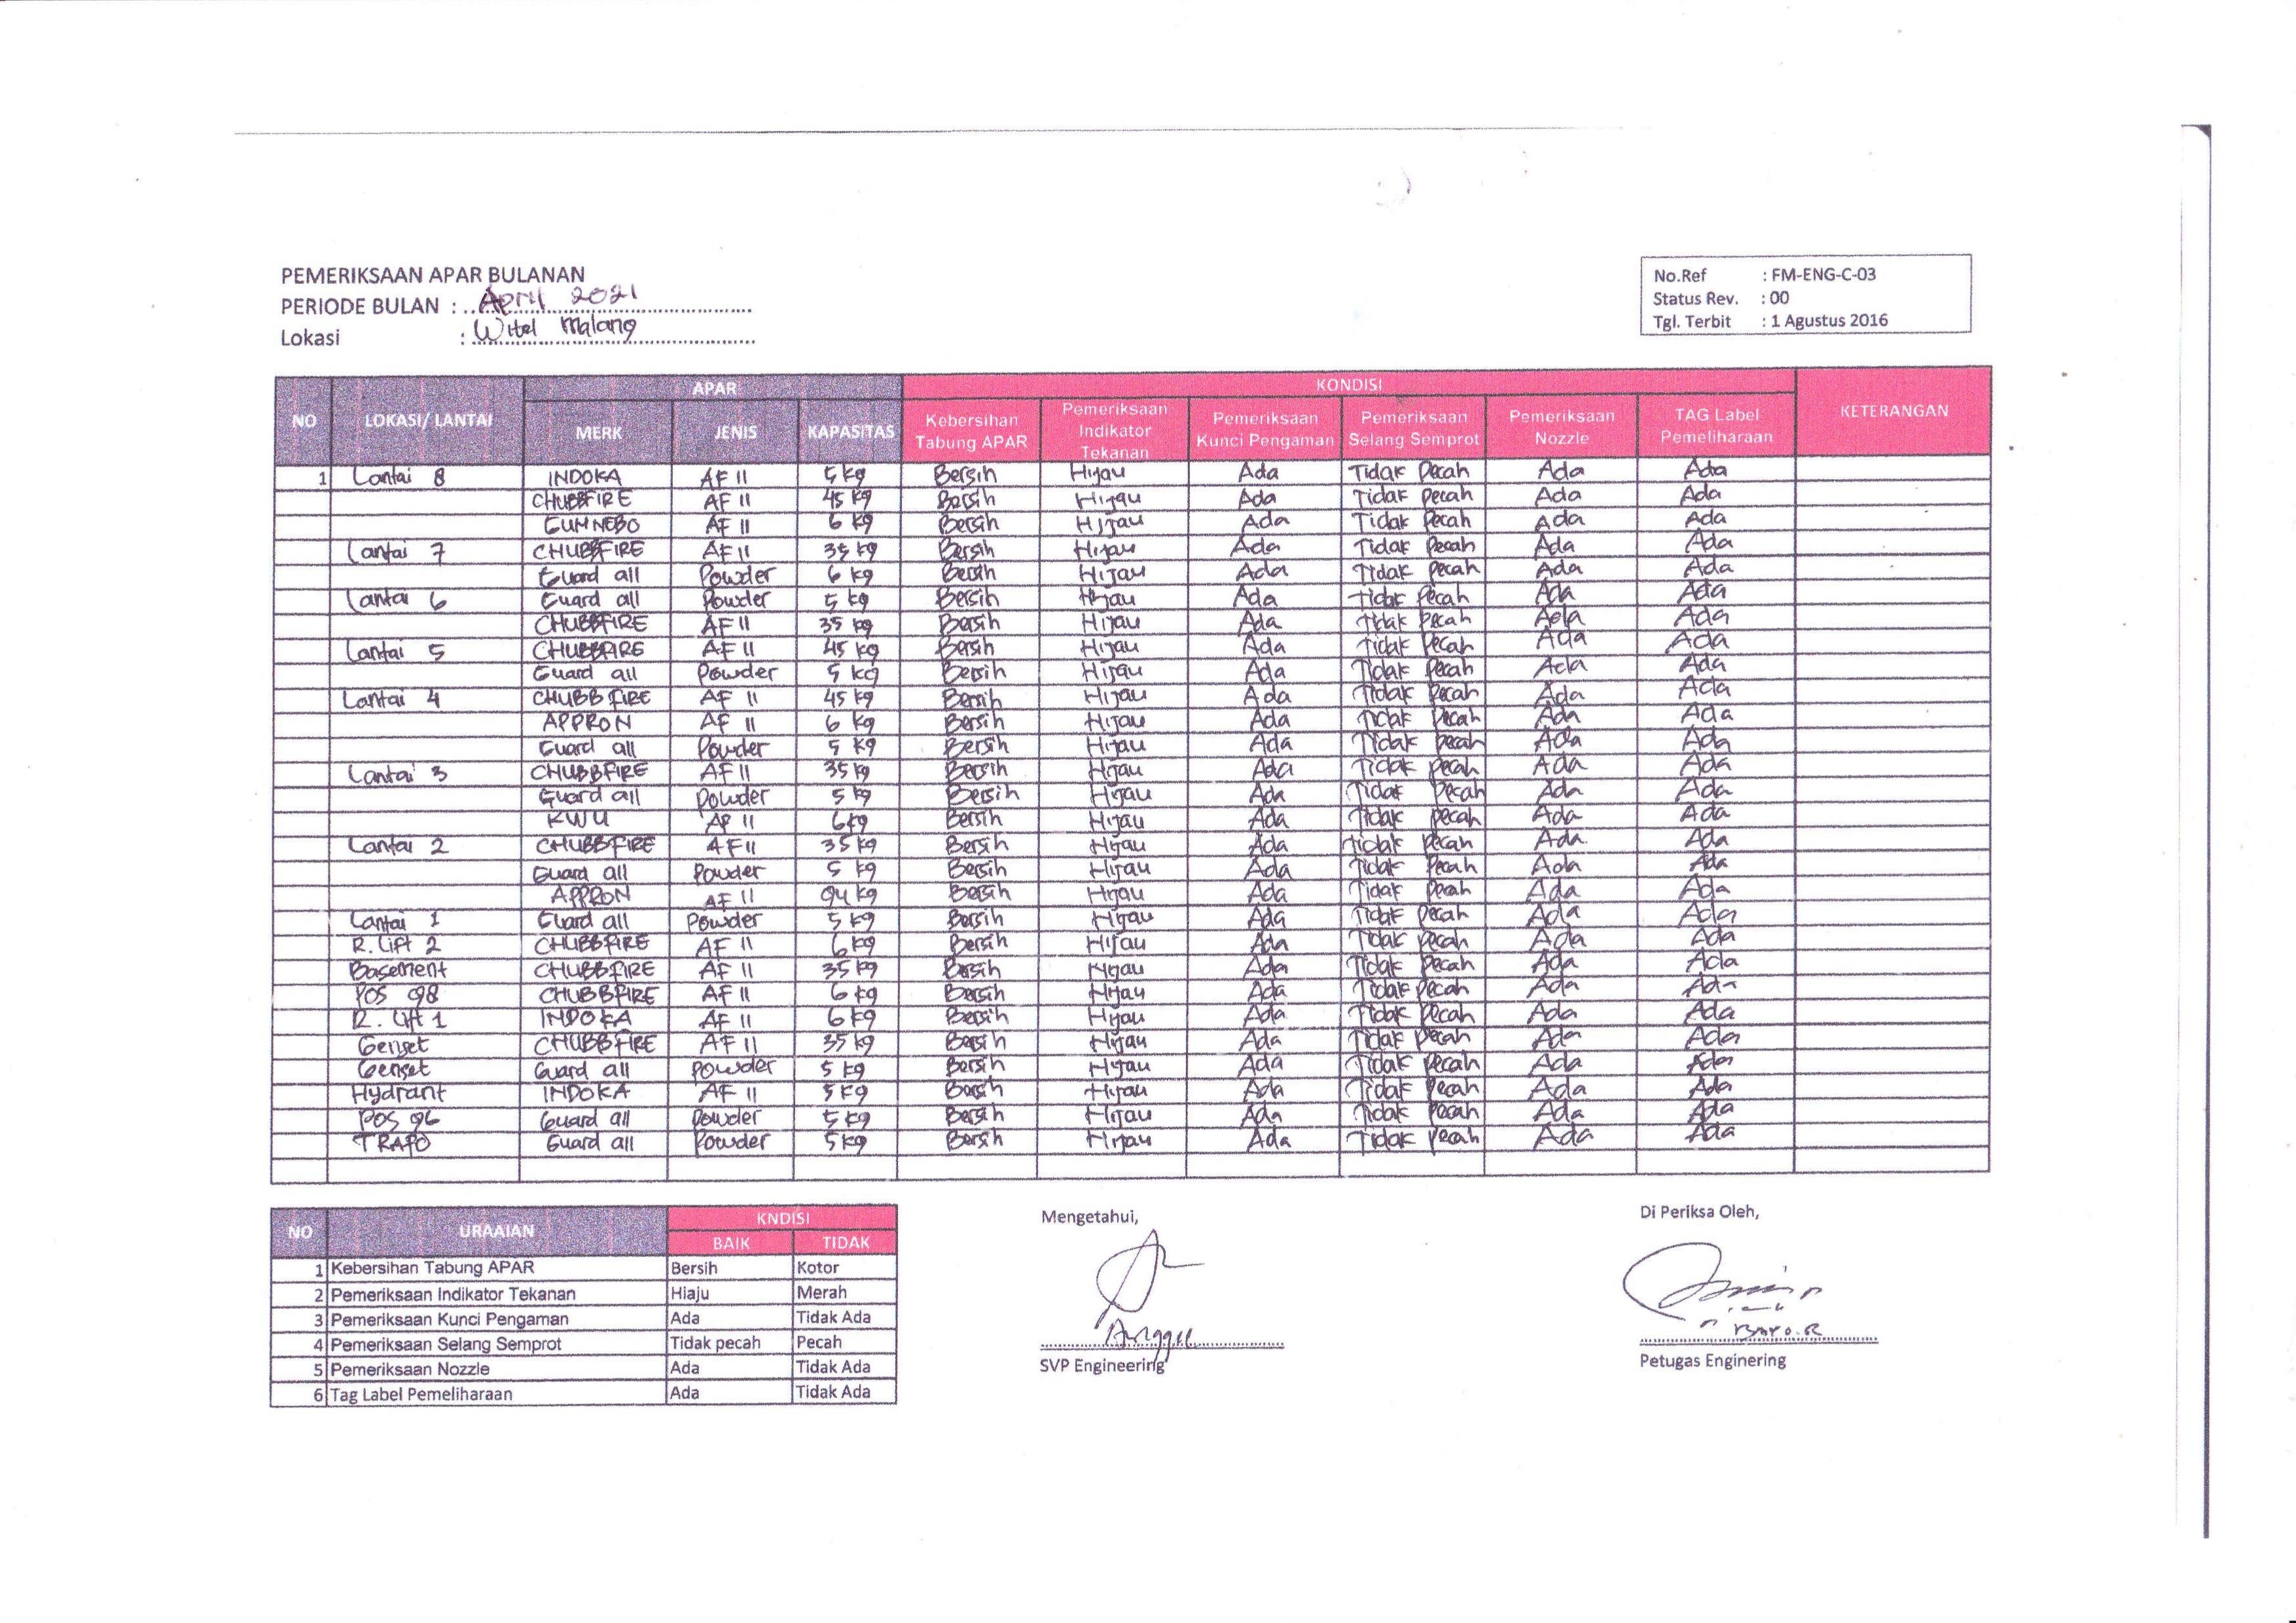 PEMERIKSAAN APAR BULANAN
PERIODE BULAN : April 2021
Lokasi : Witel Malang
No.Ref : FM-ENG-C-03
Status Rev. : 00
Tgl. Terbit : 1 Agustus 2016
NO LOKASI/ LANTAI APAR KONDISI KETERANGAN
MERK JENIS KAPASITAS Kebersihan Tabung APAR Pemeriksaan Indikator Tekanan Pemeriksaan Kunci Pengaman Pemeriksaan Selang Semprot Pemeriksaan Nozzle TAG Label Pemeliharaan
1 Lantai 8 INDOKA AF II 5 kg Bersih Hijau Ada Tidak Pecah Ada Ada
CHUBBFIRE AF II 45 kg Bersih Hijau Ada Tidak pecah Ada Ada
GUMNEBO AF II 6 kg Bersih Hijau Ada Tidak Pecah Ada Ada
Lantai 7 CHUBBFIRE AF II 35 kg Bersih Hijau Ada Tidak Pecah Ada Ada
Guard all Powder 6 kg Bersih Hijau Ada Tidak pecah Ada Ada
Lantai 6 Guard all Powder 5 kg Bersih Hijau Ada Tidak Pecah Ada Ada
CHUBBFIRE AF II 35 kg Bersih Hijau Ada Tidak pecah Ada Ada
Lantai 5 CHUBBFIRE AF II 45 kg Bersih Hijau Ada Tidak Pecah Ada Ada
Guard all Powder 5 kg Bersih Hijau Ada Tidak Pecah Ada Ada
Lantai 4 CHUBB FIRE AF II 45 kg Bersih Hijau Ada Tidak Pecah Ada Ada
APPRON AF II 6 kg Bersih Hijau Ada Tidak pecah Ada Ada
Guard all Powder 5 kg Bersih Hijau Ada Tidak pecah Ada Ada
Lantai 3 CHUBBFIRE AF II 35 kg Bersih Hijau Ada Tidak pecah Ada Ada
Guard all Powder 5 kg Bersih Hijau Ada Tidak Pecah Ada Ada
KWU AP II 6 kg Bersih Hijau Ada Tidak pecah Ada Ada
Lantai 2 CHUBBFIRE AF II 35 kg Bersih Hijau Ada Tidak Pecah Ada Ada
Guard all Powder 5 kg Bersih Hijau Ada Tidak Pecah Ada Ada
APPRON AF II 94 kg Bersih Hijau Ada Tidak Pecah Ada Ada
Lantai 1 Guard all Powder 5 kg Bersih Hijau Ada Tidak pecah Ada Ada
R. Lift 2 CHUBBFIRE AF II 6 kg Bersih Hijau Ada Tidak pecah Ada Ada
Basement CHUBBFIRE AF II 35 kg Bersih Hijau Ada Tidak pecah Ada Ada
POS 98 CHUBBFIRE AF II 6 kg Bersih Hijau Ada Tidak pecah Ada Ada
R. Lift 1 INDOKA AF II 6 kg Bersih Hijau Ada Tidak Pecah Ada Ada
Genset CHUBBFIRE AF II 35 kg Bersih Hijau Ada Tidak pecah Ada Ada
Genset Guard all Powder 5 kg Bersih Hijau Ada Tidak pecah Ada Ada
Hydrant INDOKA AF II 5 kg Bersih Hijau Ada Tidak Pecah Ada Ada
POS 96 Guard all Powder 5 kg Bersih Hijau Ada Tidak pecah Ada Ada
TRAFO Guard all Powder 5 kg Bersih Hijau Ada Tidak pecah Ada Ada
NO URAAIAN KNDISI
BAIK TIDAK
1 Kebersihan Tabung APAR Bersih Kotor
2 Pemeriksaan Indikator Tekanan Hiaju Merah
3 Pemeriksaan Kunci Pengaman Ada Tidak Ada
4 Pemeriksaan Selang Semprot Tidak pecah Pecah
5 Pemeriksaan Nozzle Ada Tidak Ada
6 Tag Label Pemeliharaan Ada Tidak Ada
Mengetahui,
SVP Engineering
Di Periksa Oleh,
BAYO.R
Petugas Enginering